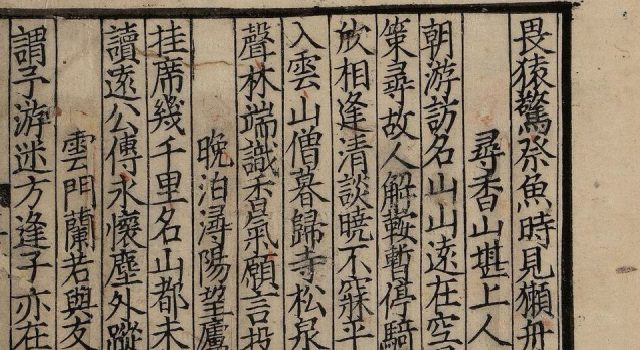 畏猿驚祭魚時見獺舟
尋香山堪上人
朝游訪名山山遠在空
策尋故人解鞍暫停騎
放相逢清談曉不寐平
入雲山僧暮歸寺松泉
聲林端識香氣願言投
晚泊潯陽望廬
挂席幾千里名山都未
讀遠公傳永懷塵外蹤
雲門蘭若與友
謂子游迷方逢子亦在